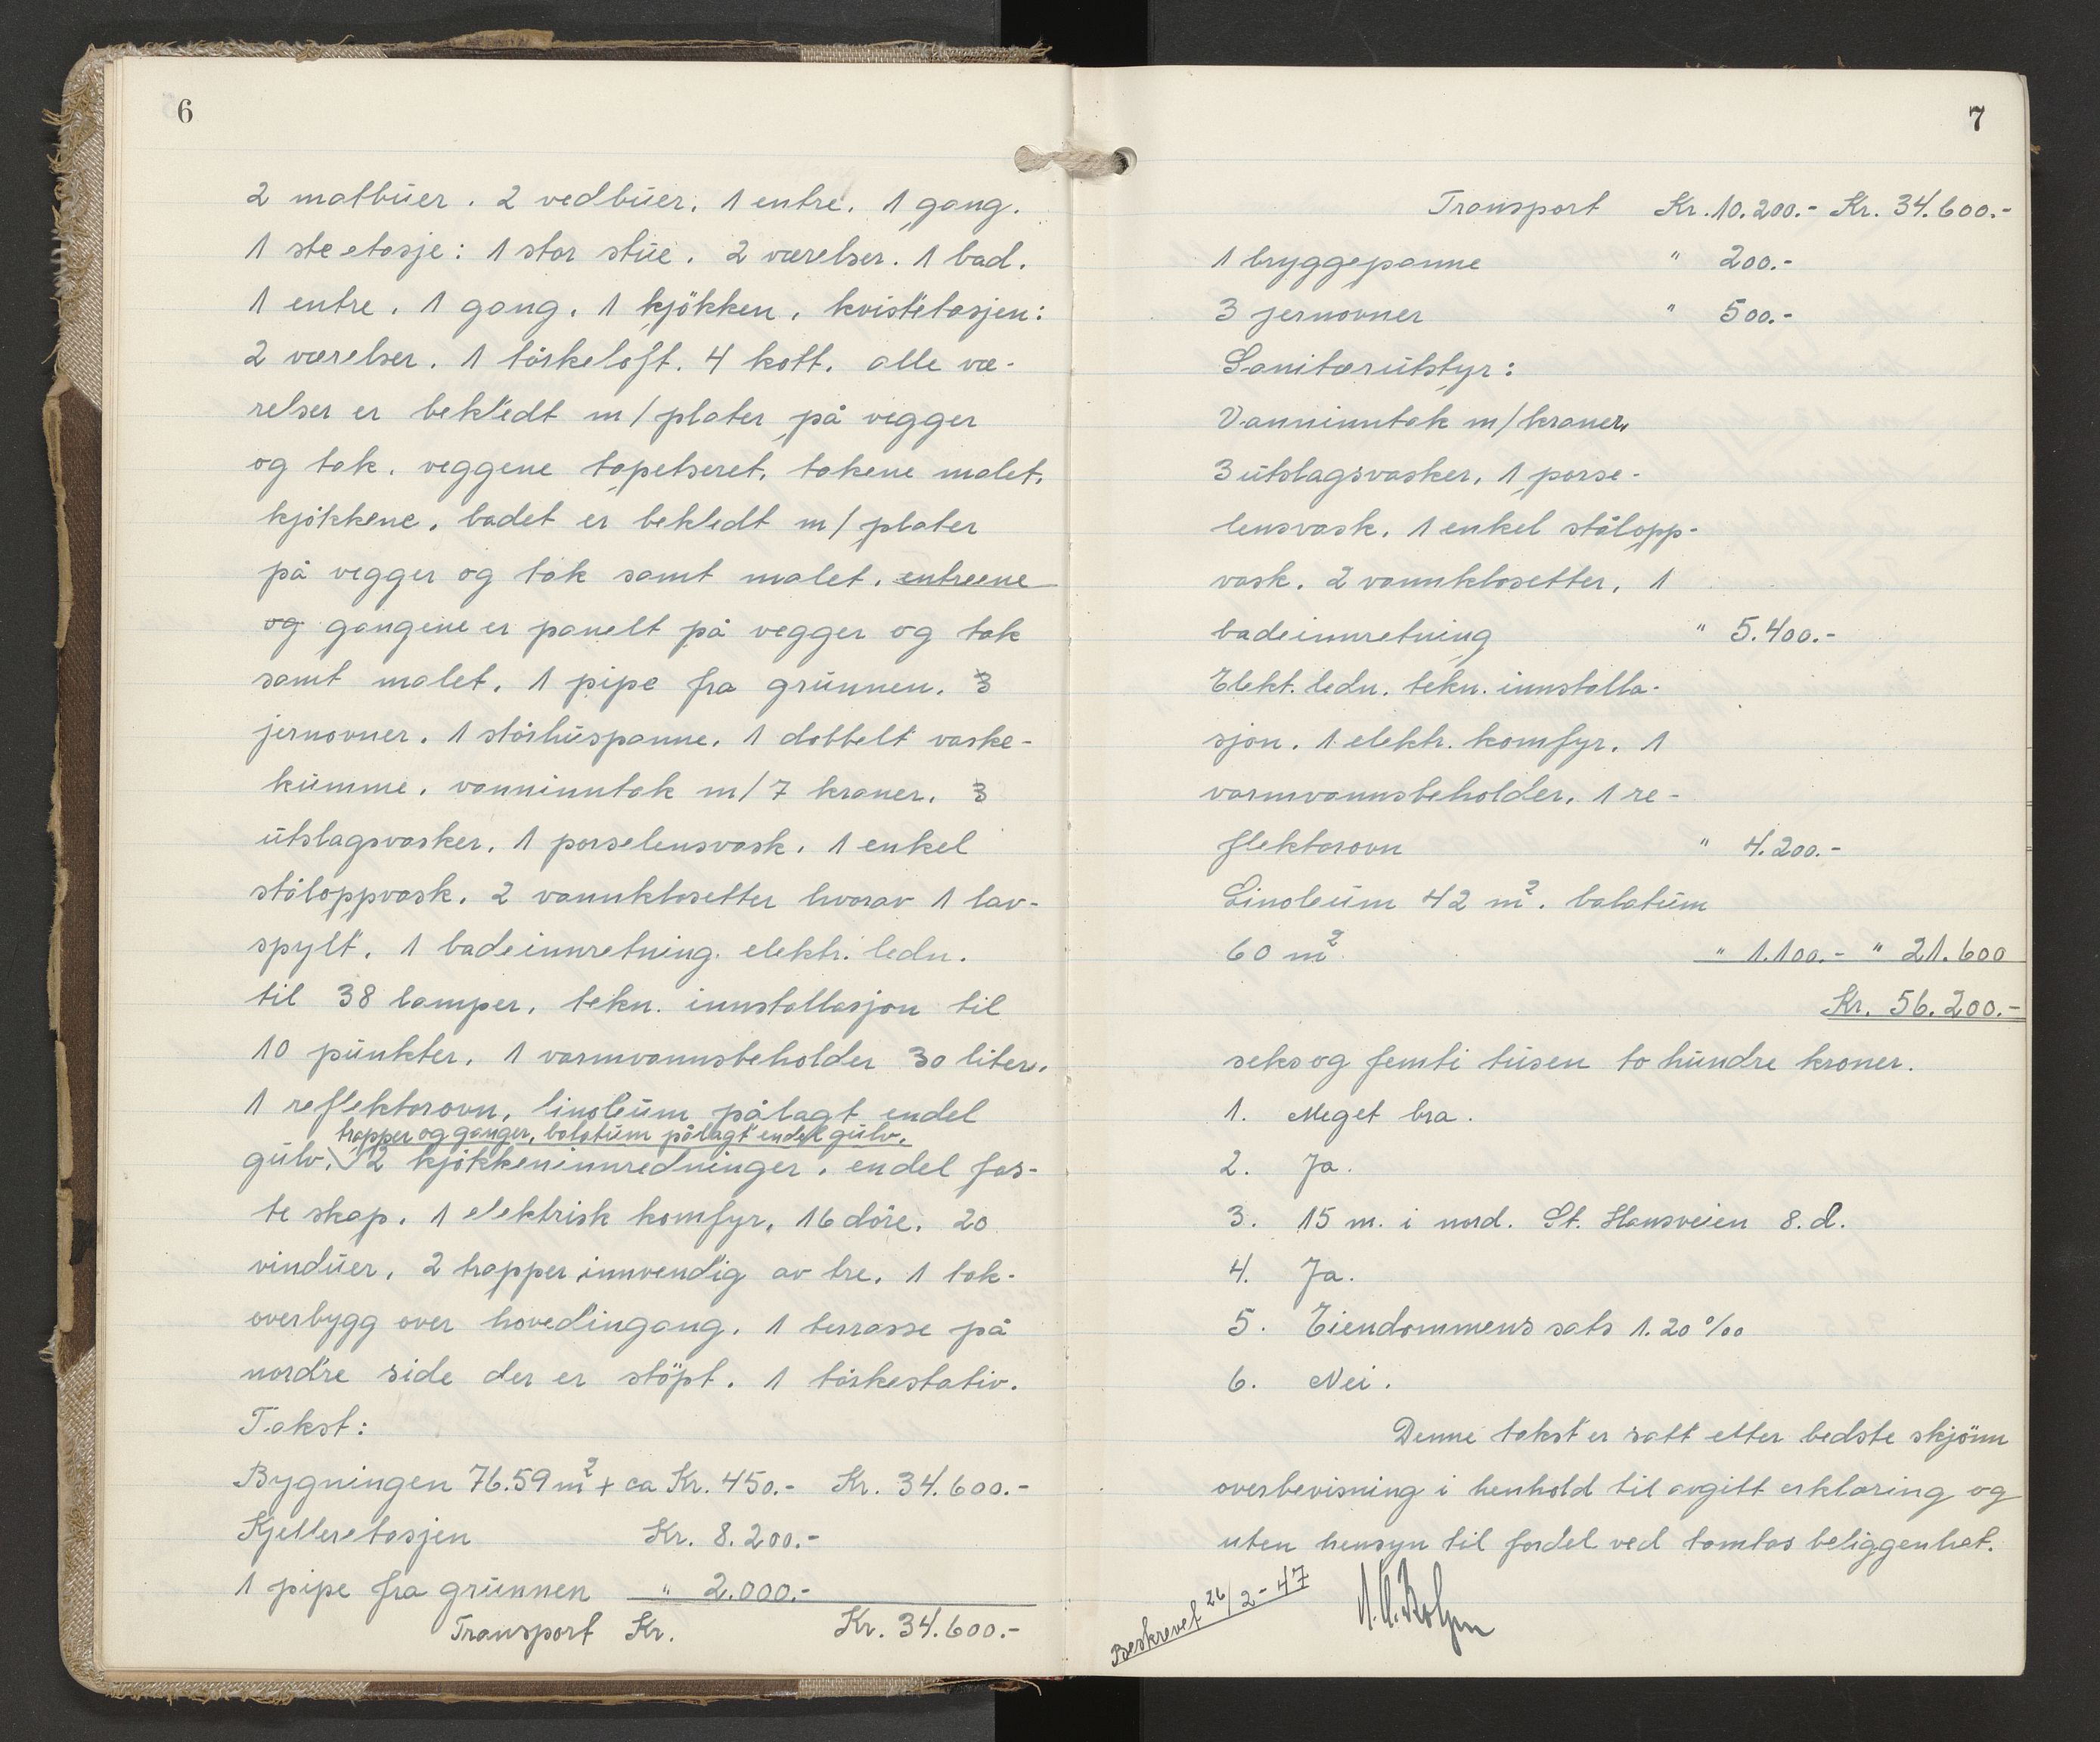 6
2 matbuer. 2 vedbuer. 1 entre. 1 gang.
1 ste etasje: 1 stor stue. 2 værelser. 1 bad.
1 entre. 1 gang. 1 kjökken. kvistetasjen:
2 værelser. 1 törkeloft. 4 kott. alle væ-
relser er bekledt m/plater på vegger
og tak. veggene tapetseret. takene malet.
kjökkene. badet er bekledt m/plater
på vegger og tak samt malet. entreene
og gangene er panelt på vegger og tak
samt malet. 1 pipe fra grunnen. 3
jernovner. 1 störhuspanne. 1 dobbelt vaske-
kumme. vanninntak m/7 kraner. 3
utslagsvasker. 1 porselensvask. 1 enkel
ståloppvask. 2 vannklosetter hvorav 1 lav-
spylt. 1 badeinnretning. elektr. ledn.
til 38 lamper. tekn. innstallasjon til
10 punkter. 1 varmvannsbeholder 30 liter.
1 reflektorovn. linoleum pålagt endel
trapper og ganger, balatum pålagt endel gulv.
gulv. 2 kjökkeninnredninger. endel fas-
te skap. 1 elektrisk komfyr. 16 döre. 20
vinduer. 2 trapper innvendig av tre. 1 tak-
overbygg over hovedingang. 1 terrasse på
nordre side der er stöpt. 1 törkestativ.
Takst:
Bygningen 76.59 m² + ca Kr. 450.- Kr. 34.600.-
Kjelleretasjen Kr. 8.200.-
1 pipe fra grunnen " 2.000.-
Transport Kr. Kr. 34.600.-
7
Transport Kr. 10.200.- Kr. 34.600.-
1 bryggepanne " 200.-
3 jernovner " 500.-
Sanitærutstyr:
Vanninntak m/kraner.
3 utslagsvasker, 1 porse-
lensvask. 1 enkel stålopp-
vask. 2 vannklosetter. 1
badeinnretning " 5.400.-
Elekt. ledn. tekn. innstalla-
sjon. 1 elektr. komfyr. 1
varmvannsbeholder. 1 re-
flektorovn " 4.200.-
Linoleum 42 m². balatum
60 m² " 1.100.- " 21.600
Kr. 56.200.-
seks og femti tusen to hundre kroner.
1. Meget bra.
2. Ja.
3. 15 m. i nord. St. Hansveien 8.d.
4. Ja.
5. Eiendommens sats 1.20 ‰
6. Nei.
Denne takst er satt etter bedste skjönn
overbevisning i henhold til avgitt erklæring og
uten hensyn til fordel ved tomtas beliggenhet.
Beskrevet 26/2-47